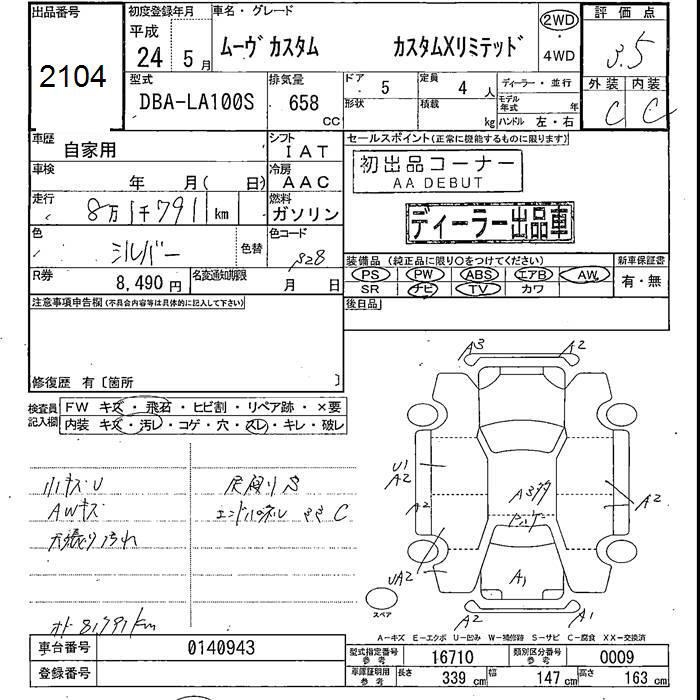 出品番号
2104
初度登録年月
平成
24 5月
車名・グレード
ムーヴ カスタム カスタムXリミテッド
2WD
・
4WD
評価点
3.5
外装 内装
C C
型式
DBA-LA100S
排気量
658 CC
ドア 5
形状
定員 4 人
積載 kg
ディーラー・並行
モデル年式 年
ハンドル 左・右
車歴
自家用
シフト
IAT
車検
年 月( 日)
冷房
AAC
走行
8万1千791 km
燃料
ガソリン
色
シルバー
色替
色コード
S28
R券
8,490 円
名変通知期限
月 日
セールスポイント(正常に機能するものに限ります)
初出品コーナー
AA DEBUT
ディーラー出品車
装備品(純正品に限り○をつけてください)
PS PW ABS エアB AW
SR ナビ TV カワ
新車保証書
有・無
後日品
注意事項申告欄(不具合内容等は具体的に記入して下さい)
修復歴 有〔箇所 〕
検査員
記入欄
FW キズ・飛石・ヒビ割・リペア跡・×要
内装 キズ・汚レ・コゲ・穴・スレ・キレ・破レ
小キズU
AWキズ
天張り汚れ
エンドパネル ササC
メーター 81791km
A3 A2
U1
A2
A2
A3多
A2
UA2
A1
A2 A1
スペア
A-キズ E-エクボ U-凹み W-補修跡 S-サビ C-腐食 XX-交換済
車台番号 0140943
登録番号
型式指定番号
参考
16710
類別区分番号
参考
0009
車庫証明用
参考
長さ 339 cm
幅 147 cm
高さ 163 cm